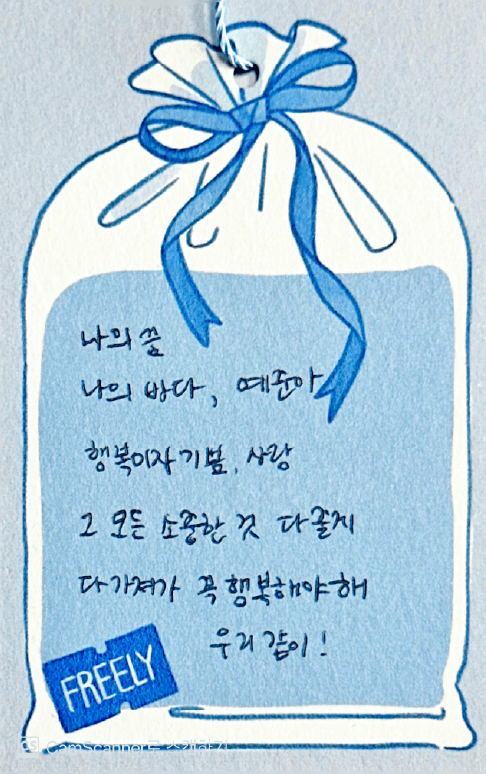 나의 꿈
나의 바다, 예준아
행복이자 기쁨, 사랑
그 모든 소중한 것 다 줄게
다 가져가 꼭 행복해야 해
우리 같이!
FREELY
CS CamScanner로 스캔하기